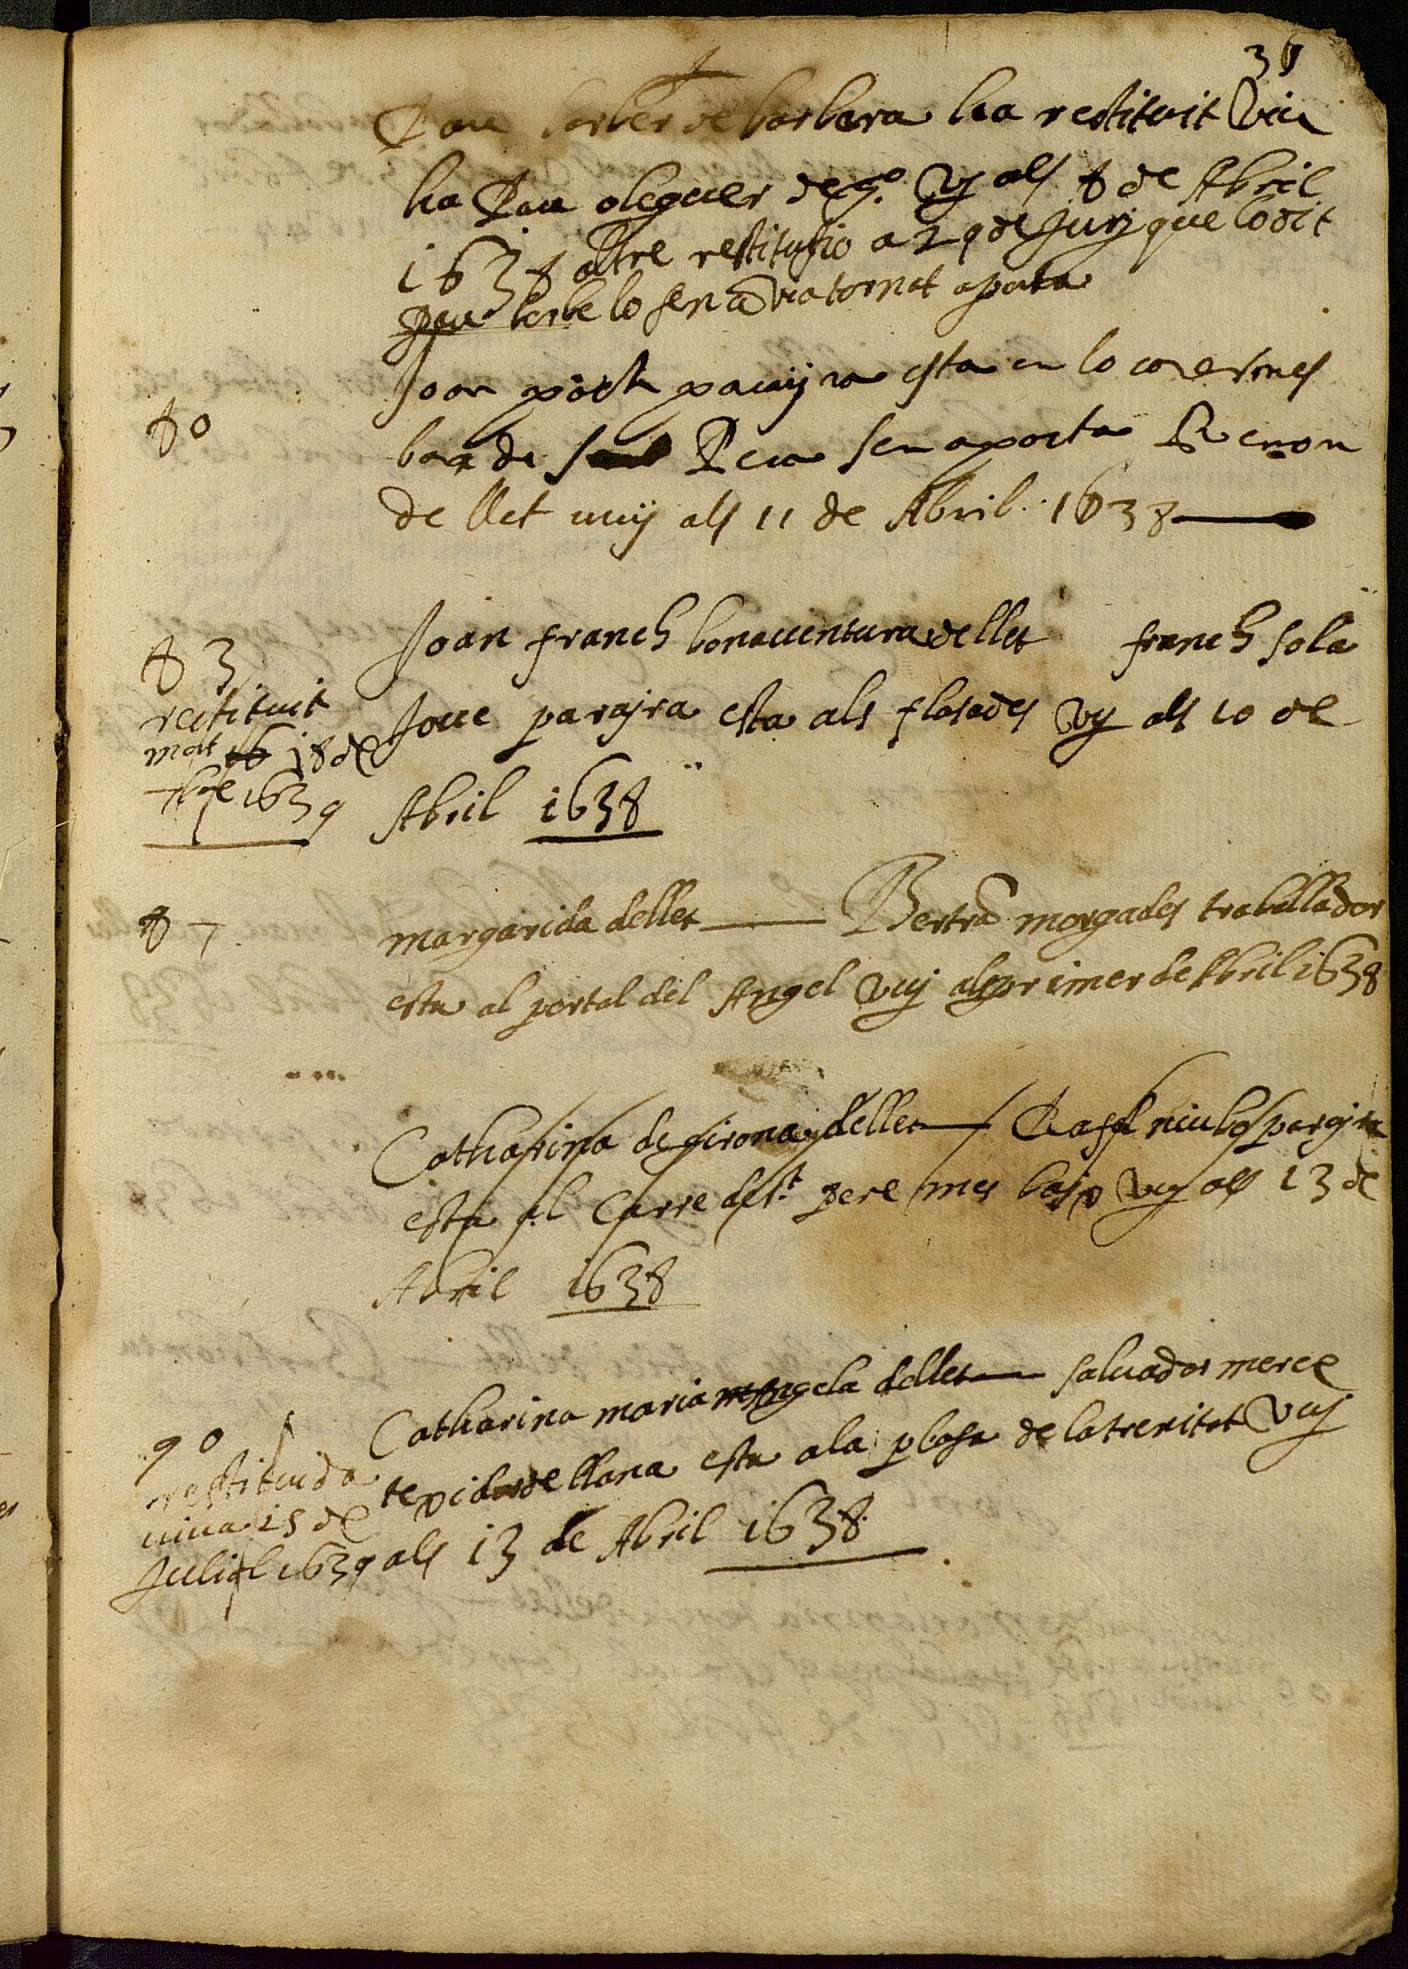 36
Pau barber de barbera ha restituit viu
ha Pau oleguer de g.º vy als 8 de Abril
1638 altre restitusio a 29 de Juny que lo dit
Pau barbe lo sen avia tornat aportar
80
Joan poch paraijra esta en lo carer mes
bax de Sant Pera sen aporta Ramon
de llet vuij als 11 de Abril 1638
83
Joan franch bonauentura de llet franch sola
restituit
mort 16 18 de
1639
Joue parajra esta als flasades vy als 10 de
Abril 1638
87
margarida de llet Bertrã morgades traballador
esta al portal del Angel vuy als primer de Abril 1638
Catharina de girona de llet Rafel niubo parajra
esta al Carre de St. pere mes baix vuy als 13 de
Abril 1638
90
restituida
viua 25 de
Juliol 1639
Catharina maria Angela de llet saluador merce
texidor de llana esta a la plasa de la trenitat Vuy
als 13 de Abril 1638